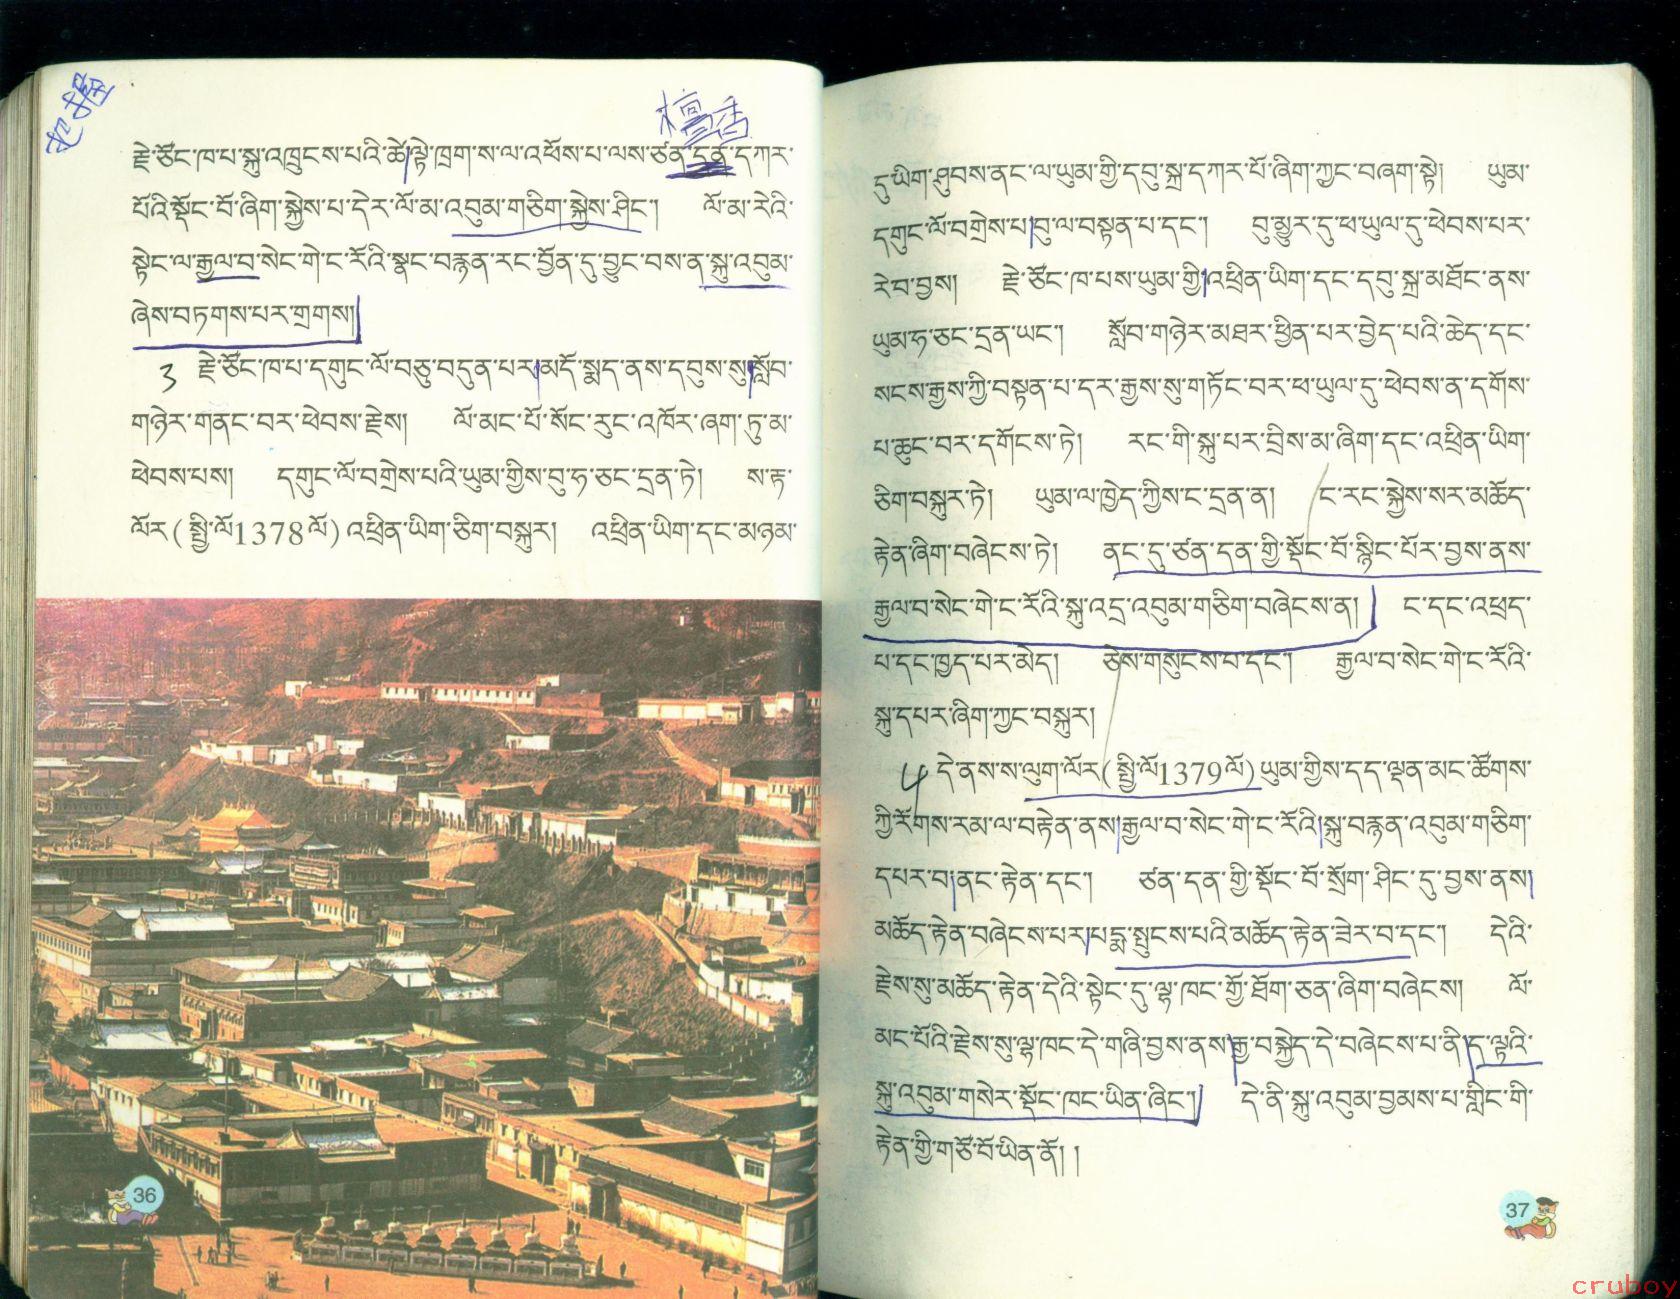 རྗེ་ཙོང་ཁ་པ་སྐུ་འཁྲུངས་པའི་ཚེ།ལྟེ་ཁྲག་ས་ལ་འཕོས་པ་ལས་ཙན་དན་དཀར་
པོའི་སྡོང་བོ་ཞིག་སྐྱེས་པ་དེར་ལོ་མ་འབུམ་གཅིག་སྐྱེས་ཤིང་། ལོ་མ་རེའི་
སྟེང་ལ་རྒྱལ་བ་སེང་གེ་ང་རོའི་སྣང་བརྙན་རང་བྱོན་དུ་བྱུང་བས་ན་སྐུ་འབུམ་
ཞེས་བཏགས་པར་གྲགས།
༣ རྗེ་ཙོང་ཁ་པ་དགུང་ལོ་བཅུ་བདུན་པར།མདོ་སྨད་ནས་དབུས་སུ།སློབ་
གཉེར་གནང་བར་ཕེབས་རྗེས། ལོ་མང་པོ་སོང་རུང་འཁོར་ཞག་ཏུ་མ་
ཕེབས་པས། དགུང་ལོ་བགྲེས་པའི་ཡུམ་གྱིས་བུ་ཧ་ཅང་དྲན་ཏེ། ས་རྟ་
ལོར(སྤྱི་ལོ1378ལོ)འཕྲིན་ཡིག་ཅིག་བསྐུར། འཕྲིན་ཡིག་དང་མཉམ་
36
དུ་ཡིག་ཤུབས་ནང་ལ་ཡུམ་གྱི་དབུ་སྐྲ་དཀར་པོ་ཞིག་ཀྱང་བཞག་སྟེ། ཡུམ་
དགུང་ལོ་བགྲེས་པ།བུ་ལ་བསྟན་པ་དང་། བུ་མྱུར་དུ་ཕ་ཡུལ་དུ་ཕེབས་པར་
རེ་བ་བྱས། རྗེ་ཙོང་ཁ་པས་ཡུམ་གྱི།འཕྲིན་ཡིག་དང་དབུ་སྐྲ་མཐོང་ནས་
ཡུམ་ཧ་ཅང་དྲན་ཡང་། སློབ་གཉེར་མཐར་ཕྱིན་པར་བྱེད་པའི་ཆེད་དང་
སངས་རྒྱས་ཀྱི་བསྟན་པ་དར་རྒྱས་སུ་གཏོང་བར་ཕ་ཡུལ་དུ་ཕེབས་ན་དགོས་
པ་ཆུང་བར་དགོངས་ཏེ། རང་གི་སྐུ་པར་བྲིས་མ་ཞིག་དང་འཕྲིན་ཡིག་
ཅིག་བསྐུར་ཏེ། ཡུམ་ལ་ཁྱེད་ཀྱིས་ང་དྲན་ན། ང་རང་སྐྱེས་སར་མཆོད་
རྟེན་ཞིག་བཞེངས་ཏེ། ནང་དུ་ཙན་དན་གྱི་སྡོང་བོ་སྙིང་པོར་བྱས་ནས་
རྒྱལ་བ་སེང་གེ་ང་རོའི་སྐུ་འདྲ་འབུམ་གཅིག་བཞེངས་ན། ང་དང་འཕྲད་
པ་དང་ཁྱད་པར་མེད། ཅེས་གསུངས་པ་དང་། རྒྱལ་བ་སེང་གེ་ང་རོའི་
སྐུ་དཔར་ཞིག་ཀྱང་བསྐུར།
༤ དེ་ནས་ས་ལུག་ལོར(སྤྱི་ལོ1379ལོ)ཡུམ་གྱིས་དད་ལྡན་མང་ཚོགས་
ཀྱི་རོགས་རམ་ལ་བརྟེན་ནས།རྒྱལ་བ་སེང་གེ་ང་རོའི།སྐུ་བརྙན་འབུམ་གཅིག་
དཔར་བ།ནང་རྟེན་དང་། ཙན་དན་གྱི་སྡོང་བོ་སྲོག་ཤིང་དུ་བྱས་ནས།
མཆོད་རྟེན་བཞེངས་པར།པདྨ་སྤུངས་པའི་མཆོད་རྟེན་ཟེར་བ་དང་། དེའི་
རྗེས་སུ་མཆོད་རྟེན་དེའི་སྟེང་དུ་ལྷ་ཁང་གྱོ་ཐོག་ཅན་ཞིག་བཞེངས། ལོ་
མང་པོའི་རྗེས་སུ་ལྷ་ཁང་དེ་གཞི་བྱས་ནས།རྒྱ་བསྐྱེད་དེ་བཞེངས་པ་ནི།ད་ལྟའི་
སྐུ་འབུམ་གསེར་སྡོང་ཁང་ཡིན་ཞིང་། དེ་ནི་སྐུ་འབུམ་བྱམས་པ་གླིང་གི་
རྟེན་གྱི་གཙོ་བོ་ཡིན་ནོ། །
37
cruboy